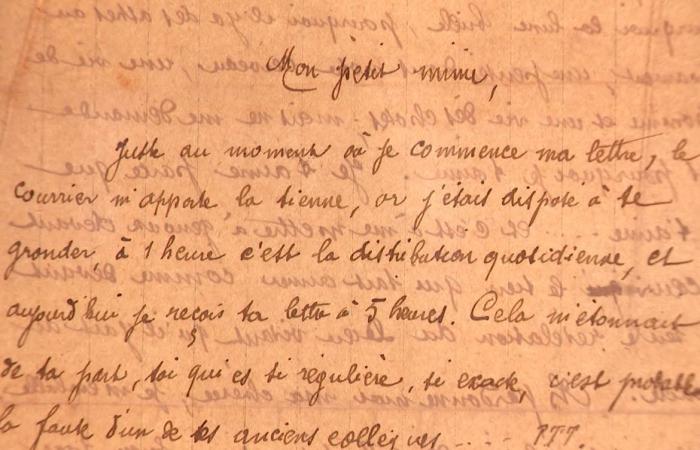 Mon petit mimi,
Juste au moment où je commence ma lettre, le
courrier m'apporte la tienne, or j'étais disposé à te
gronder à 1 heure c'est la distribution quotidienne, et
aujourd'hui je reçois ta lettre à 5 heures. Cela m'étonnait
de ta part, toi qui es si régulière, si exacte, c'est probable
la faute d'un de tes anciens collègues .... ???.